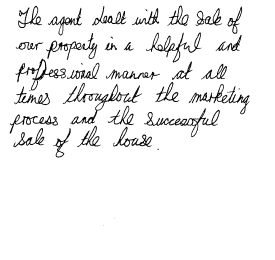 The agent dealt with the sale of
our property in a helpful and
professional manner at all
times throughout the marketing
process and the successful
sale of the house.